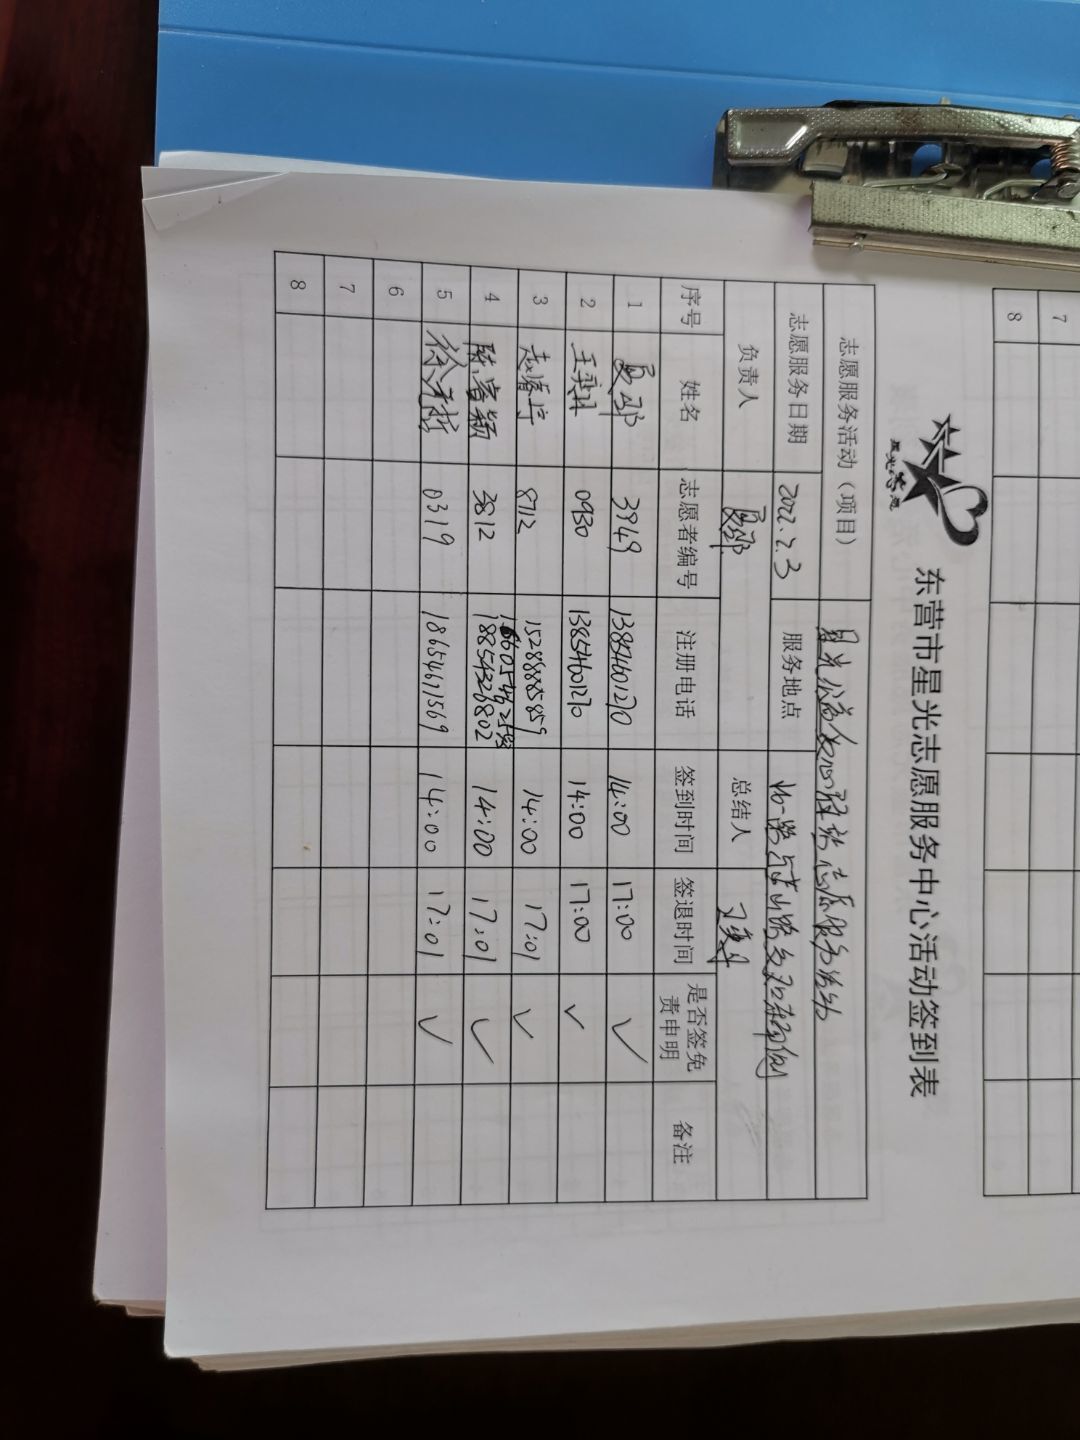 7
8
星光志愿
东营市星光志愿服务中心活动签到表
志愿服务活动（项目） 星光公益爱心驿站志愿服务活动
志愿服务日期 2022.2.3 服务地点
负责人 总结人
序号 姓名 志愿者编号 注册电话 签到时间 签退时间 是否签免责申明 备注
1 3949 13854601270 14:00 17:00 ✓
2 王奕丹 0930 13854601270 14:00 17:00 ✓
3 赵睿宁 8712 15288885859 14:00 17:01 ✓
4 陈睿颖 3812 18854326802 14:00 17:01 ✓
5 0319 18654671569 14:00 17:01 ✓
6
7
8